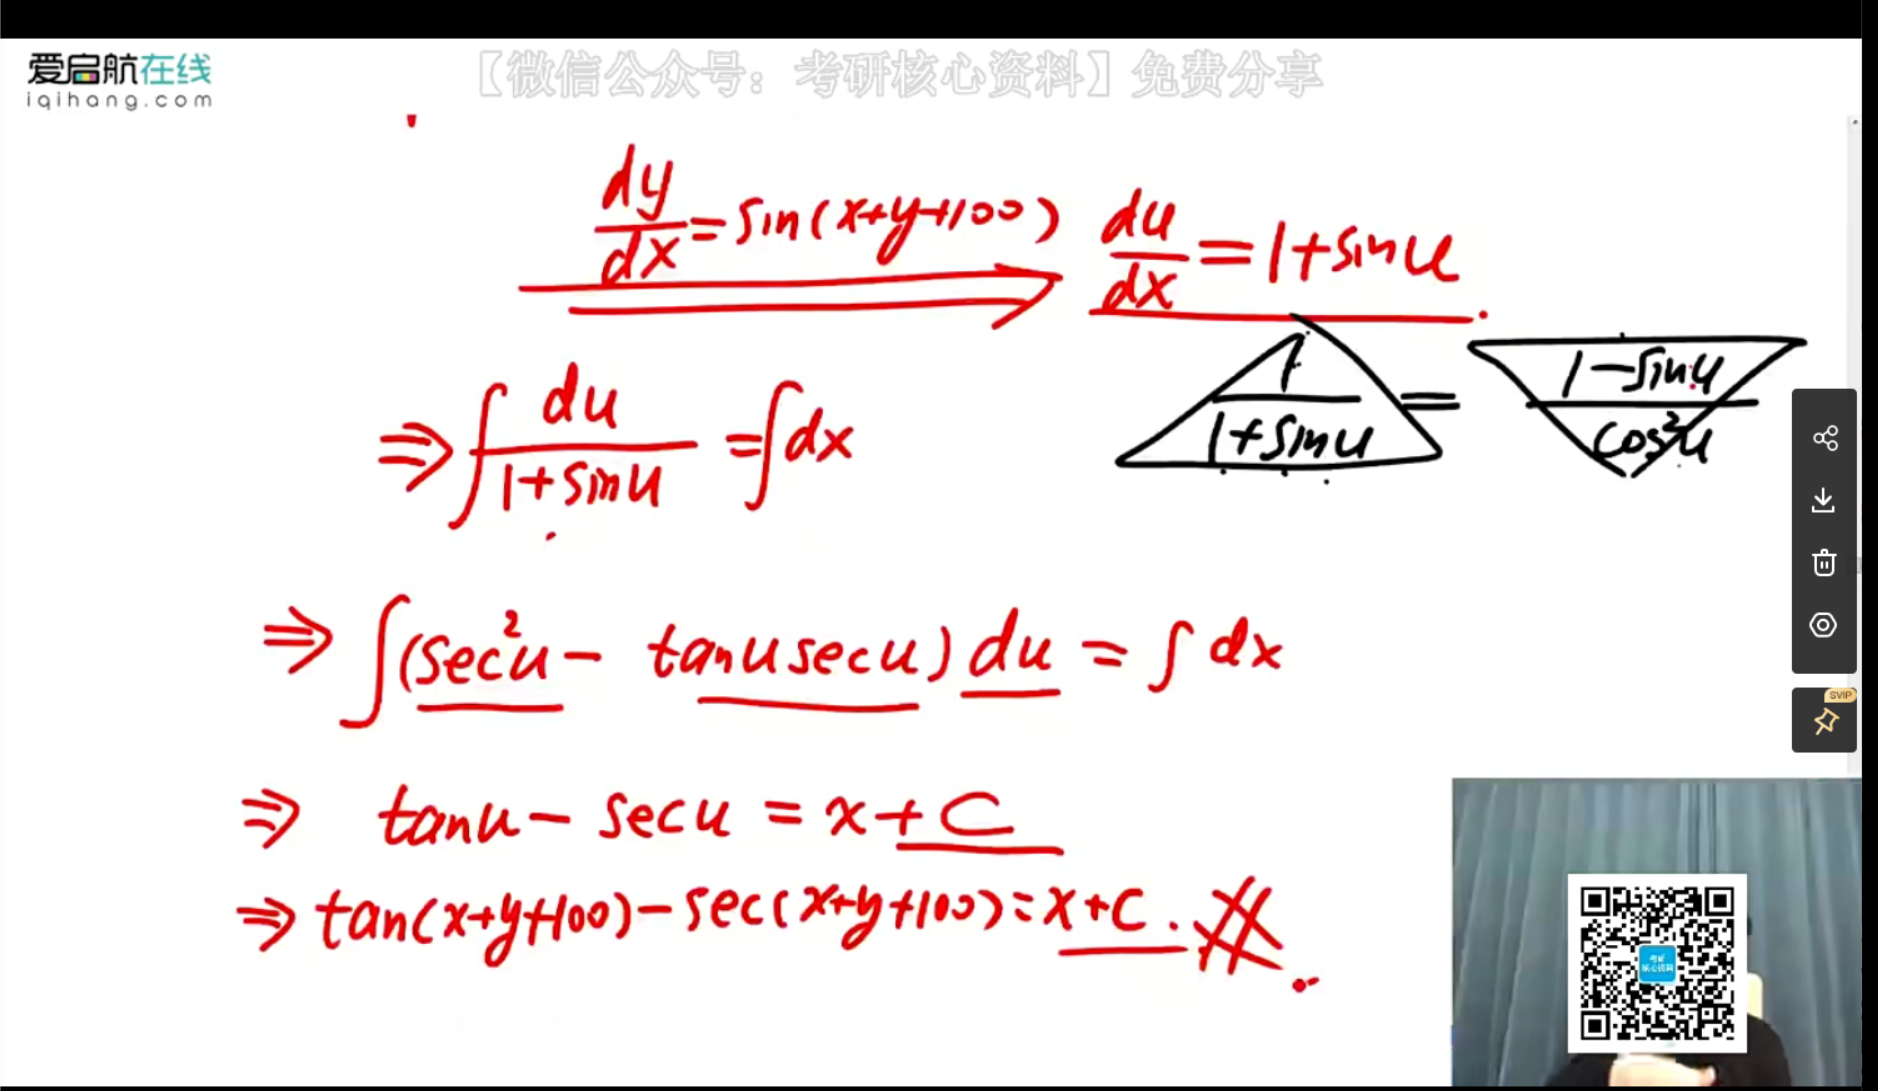 爱启航在线
iqihang.com
【微信公众号：考研核心资料】免费分享
dy/dx = sin(x+y+100)
du/dx = 1+sinu
1/(1+sinu) = (1-sinu)/cos²u
⇒ ∫ du/(1+sinu) = ∫dx
⇒ ∫(sec²u - tanusecu)du = ∫dx
SVIP
⇒ tanu - secu = x+C
⇒ tan(x+y+100) - sec(x+y+100) = x+C. #
考研
核心资料